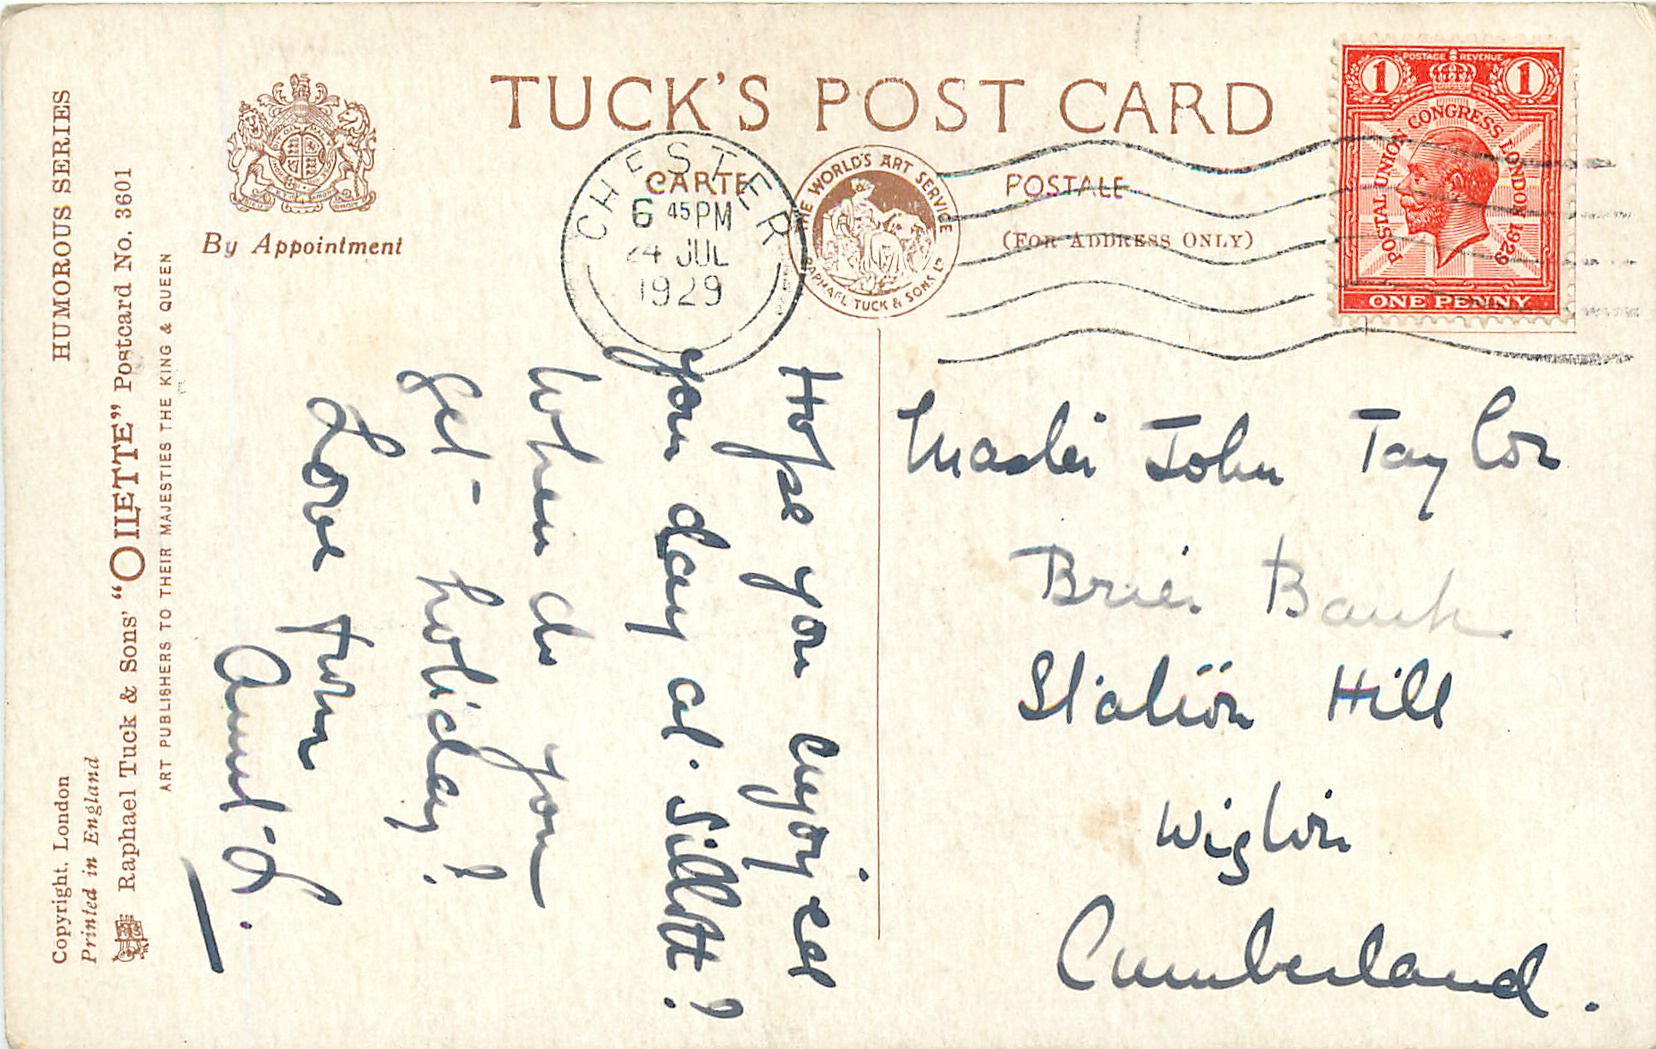 TUCK'S POST CARD
CARTE POSTALE
(FOR ADDRESS ONLY)
By Appointment
THE WORLD'S ART SERVICE
RAPHAEL TUCK & SONS LD
CHESTER
6 45 PM
24 JUL
1929
POSTAGE REVENUE
1 1
POSTAL UNION CONGRESS LONDON 1929
ONE PENNY
HUMOROUS SERIES
Copyright. London
Printed in England
Raphael Tuck & Sons' "OILETTE" Postcard No. 3601
ART PUBLISHERS TO THEIR MAJESTIES THE KING & QUEEN
Hope you enjoyed
your day at Silloth?
When do you
get holiday?
Love from
Aunt L.
Master John Taylor
Brier Bank.
Station Hill
Wigton
Cumberland.